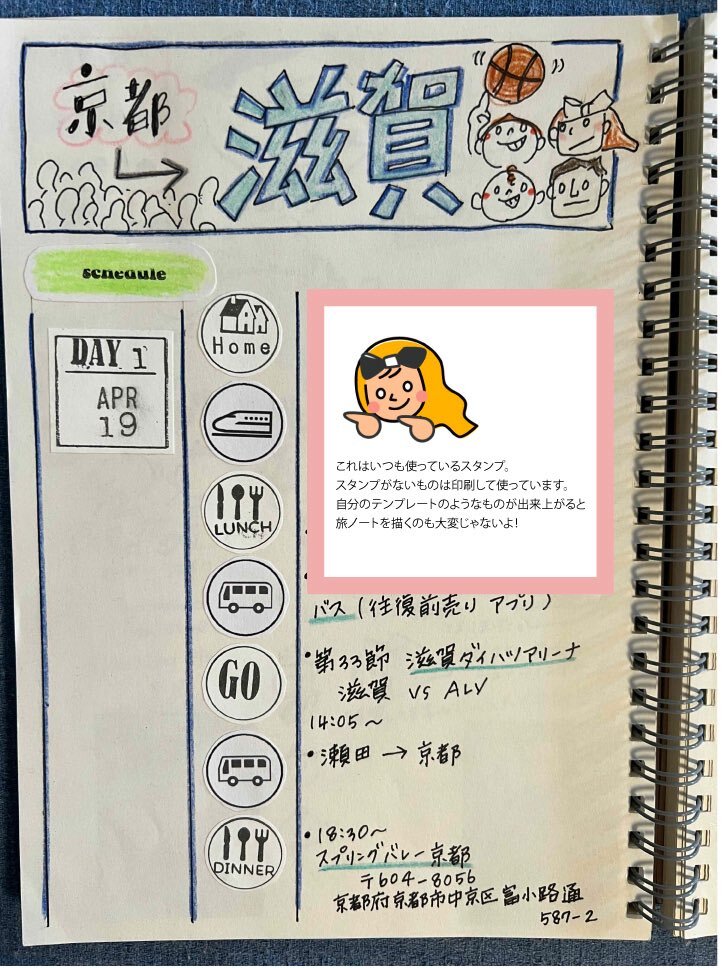 京都
滋賀
schedule
DAY 1
APR
19
Home
LUNCH
GO
DINNER
これはいつも使っているスタンプ。
スタンプがないものは印刷して使っています。
自分のテンプレートのようなものが出来上がると
旅ノートを描くのも大変じゃないよ!
バス (往復前売り アプリ)
・第33節 滋賀ダイハツアリーナ
滋賀 VS ALV
14:05〜
・瀬田 → 京都
・18:30〜
スプリングバレー京都
〒604-8056
京都府京都市中京区富小路通
587-2